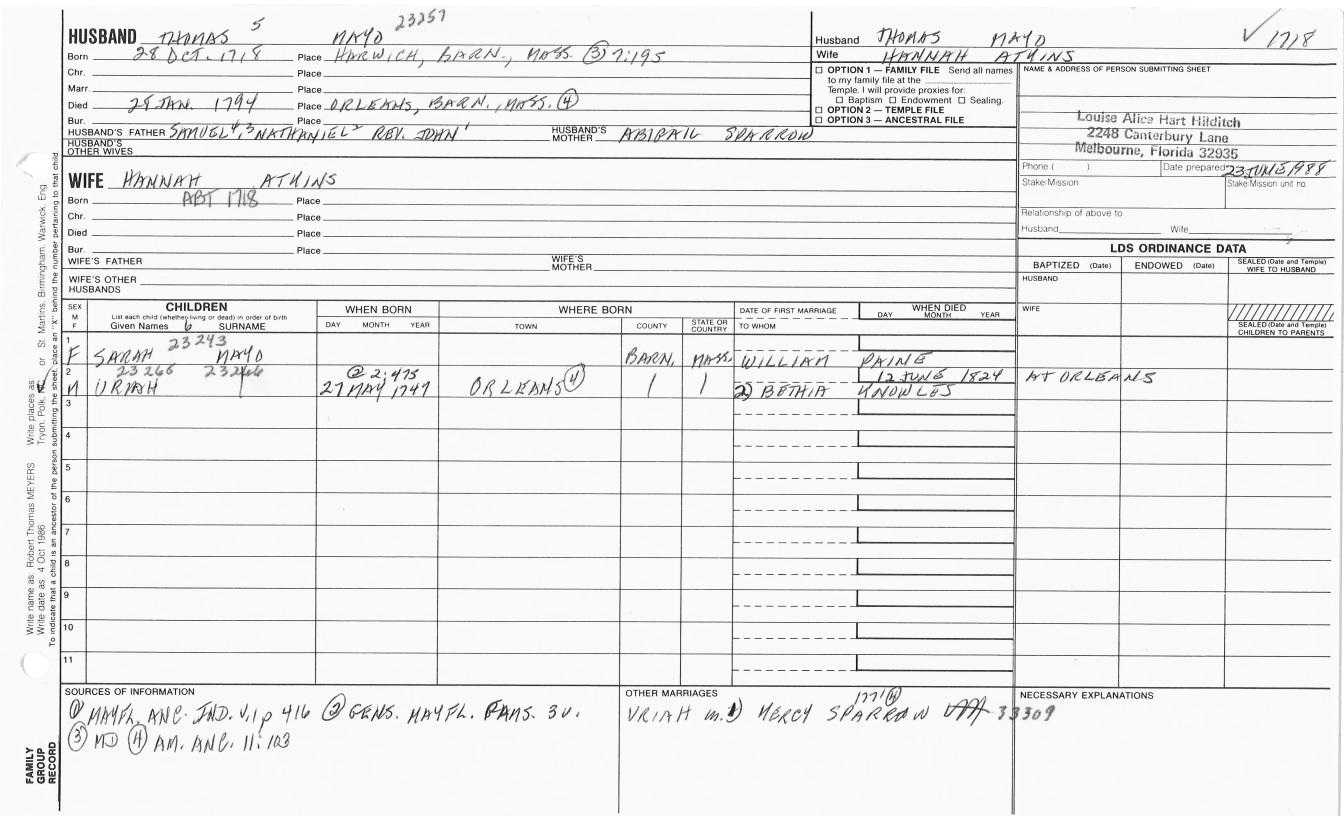 23257
HUSBAND THOMAS 5 MAYO
Born 28 OCT. 1718 Place HARWICH, BARN., MASS. ③ 7:195
Chr. Place
Marr. Place
Died 28 JAN. 1794 Place ORLEANS, BARN., MASS. ④
Bur. Place
HUSBAND'S FATHER SAMUEL 4, 3 NATHANIEL 2 REV. JOHN 1 HUSBAND'S MOTHER ABIGAIL SPARROW
HUSBAND'S OTHER WIVES
Husband THOMAS MAYO ✓ 1718
Wife HANNAH ATKINS
☐ OPTION 1 — FAMILY FILE Send all names
to my family file at the
Temple. I will provide proxies for:
☐ Baptism ☐ Endowment ☐ Sealing.
☐ OPTION 2 — TEMPLE FILE
☐ OPTION 3 — ANCESTRAL FILE
NAME & ADDRESS OF PERSON SUBMITTING SHEET
Louise Alice Hart Hilditch
2248 Canterbury Lane
Melbourne, Florida 32935
Phone ( ) Date prepared 23 JUNE 1988
Stake/Mission Stake/Mission unit no.
Relationship of above to
Husband Wife
WIFE HANNAH ATKINS
Born ABT 1718 Place
Chr. Place
Died Place
Bur. Place
WIFE'S FATHER WIFE'S MOTHER
WIFE'S OTHER HUSBANDS
LDS ORDINANCE DATA
BAPTIZED (Date) ENDOWED (Date) SEALED (Date and Temple) WIFE TO HUSBAND
HUSBAND
WIFE
SEALED (Date and Temple) CHILDREN TO PARENTS
SEX M F CHILDREN WHEN BORN WHERE BORN DATE OF FIRST MARRIAGE WHEN DIED
List each child (whether living or dead) in order of birth
Given Names 6 SURNAME DAY MONTH YEAR TOWN COUNTY STATE OR COUNTRY TO WHOM DAY MONTH YEAR
23243
1 F SARAH MAYO BARN. MASS. WILLIAM PAINE
23265 23266 @ 2:475 12 JUNE 1824 AT ORLEANS
2 M URIAH 27 MAY 1747 ORLEANS ④ 2) BETHIA KNOWLES
3
4
5
6
7
8
9
10
11
SOURCES OF INFORMATION
① MAYFL. ANC. IND. V.1 p 416 ② GENS. MAYFL. FAMS. 3 v.
③ MD ④ AM. ANC. 11:103
OTHER MARRIAGES
1771 ④
URIAH m. 1) MERCY SPARROW 33309
NECESSARY EXPLANATIONS
Write name as: Robert Thomas MEYERS Write places as: Tryon, Polk, or St. Martins, Birmingham, Warwick, Eng
Write date as: 4 Oct 1986
To indicate that a child is an ancestor of the person submitting the sheet, place an "X" behind the number pertaining to that child
FAMILY GROUP RECORD